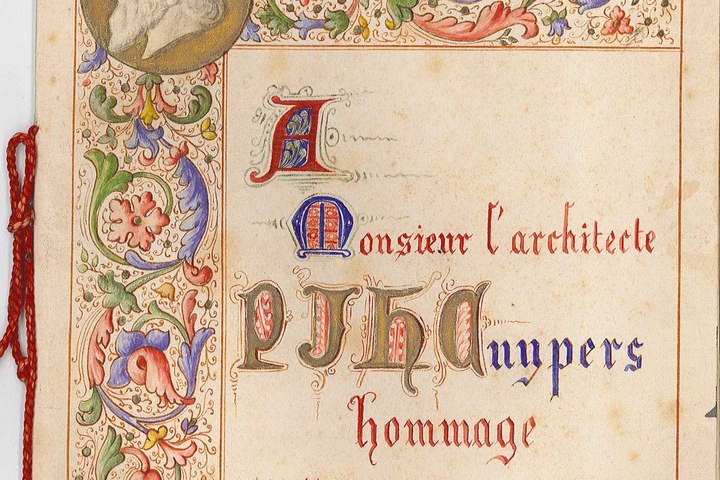 A
Monsieur l'architecte
PJHCuypers
hommage